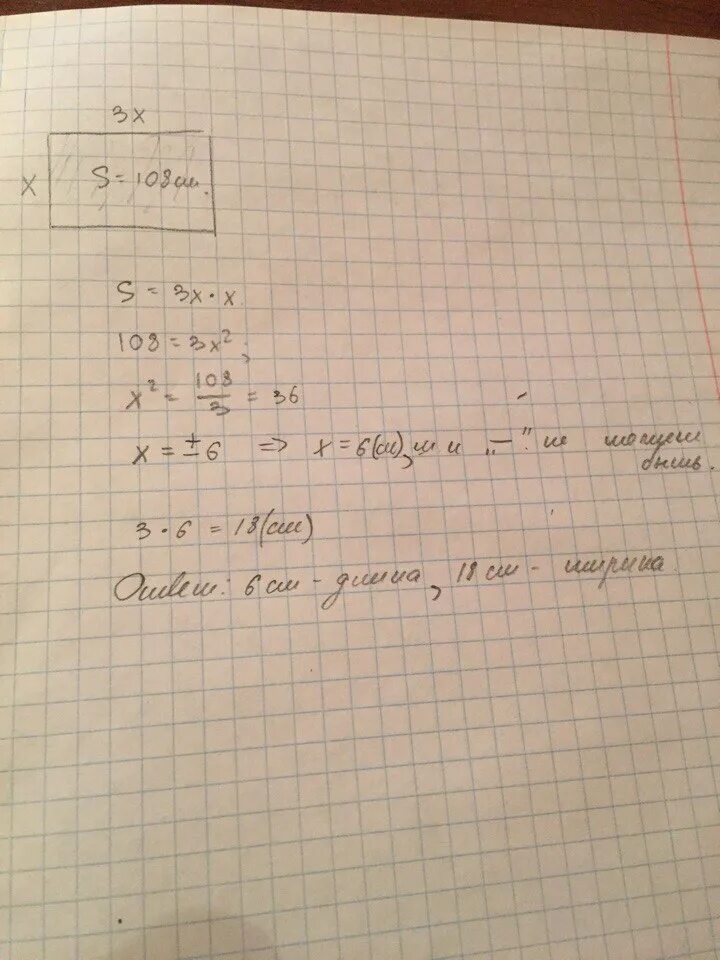 3x
x
S = 108 см.
S = 3x · x
108 = 3x²;
x² = 108/3 = 36
x = ±6 => x = 6(см), т и „—". не может
быть.
3 · 6 = 18(см)
Ответ: 6 см - длина, 18 см - ширина